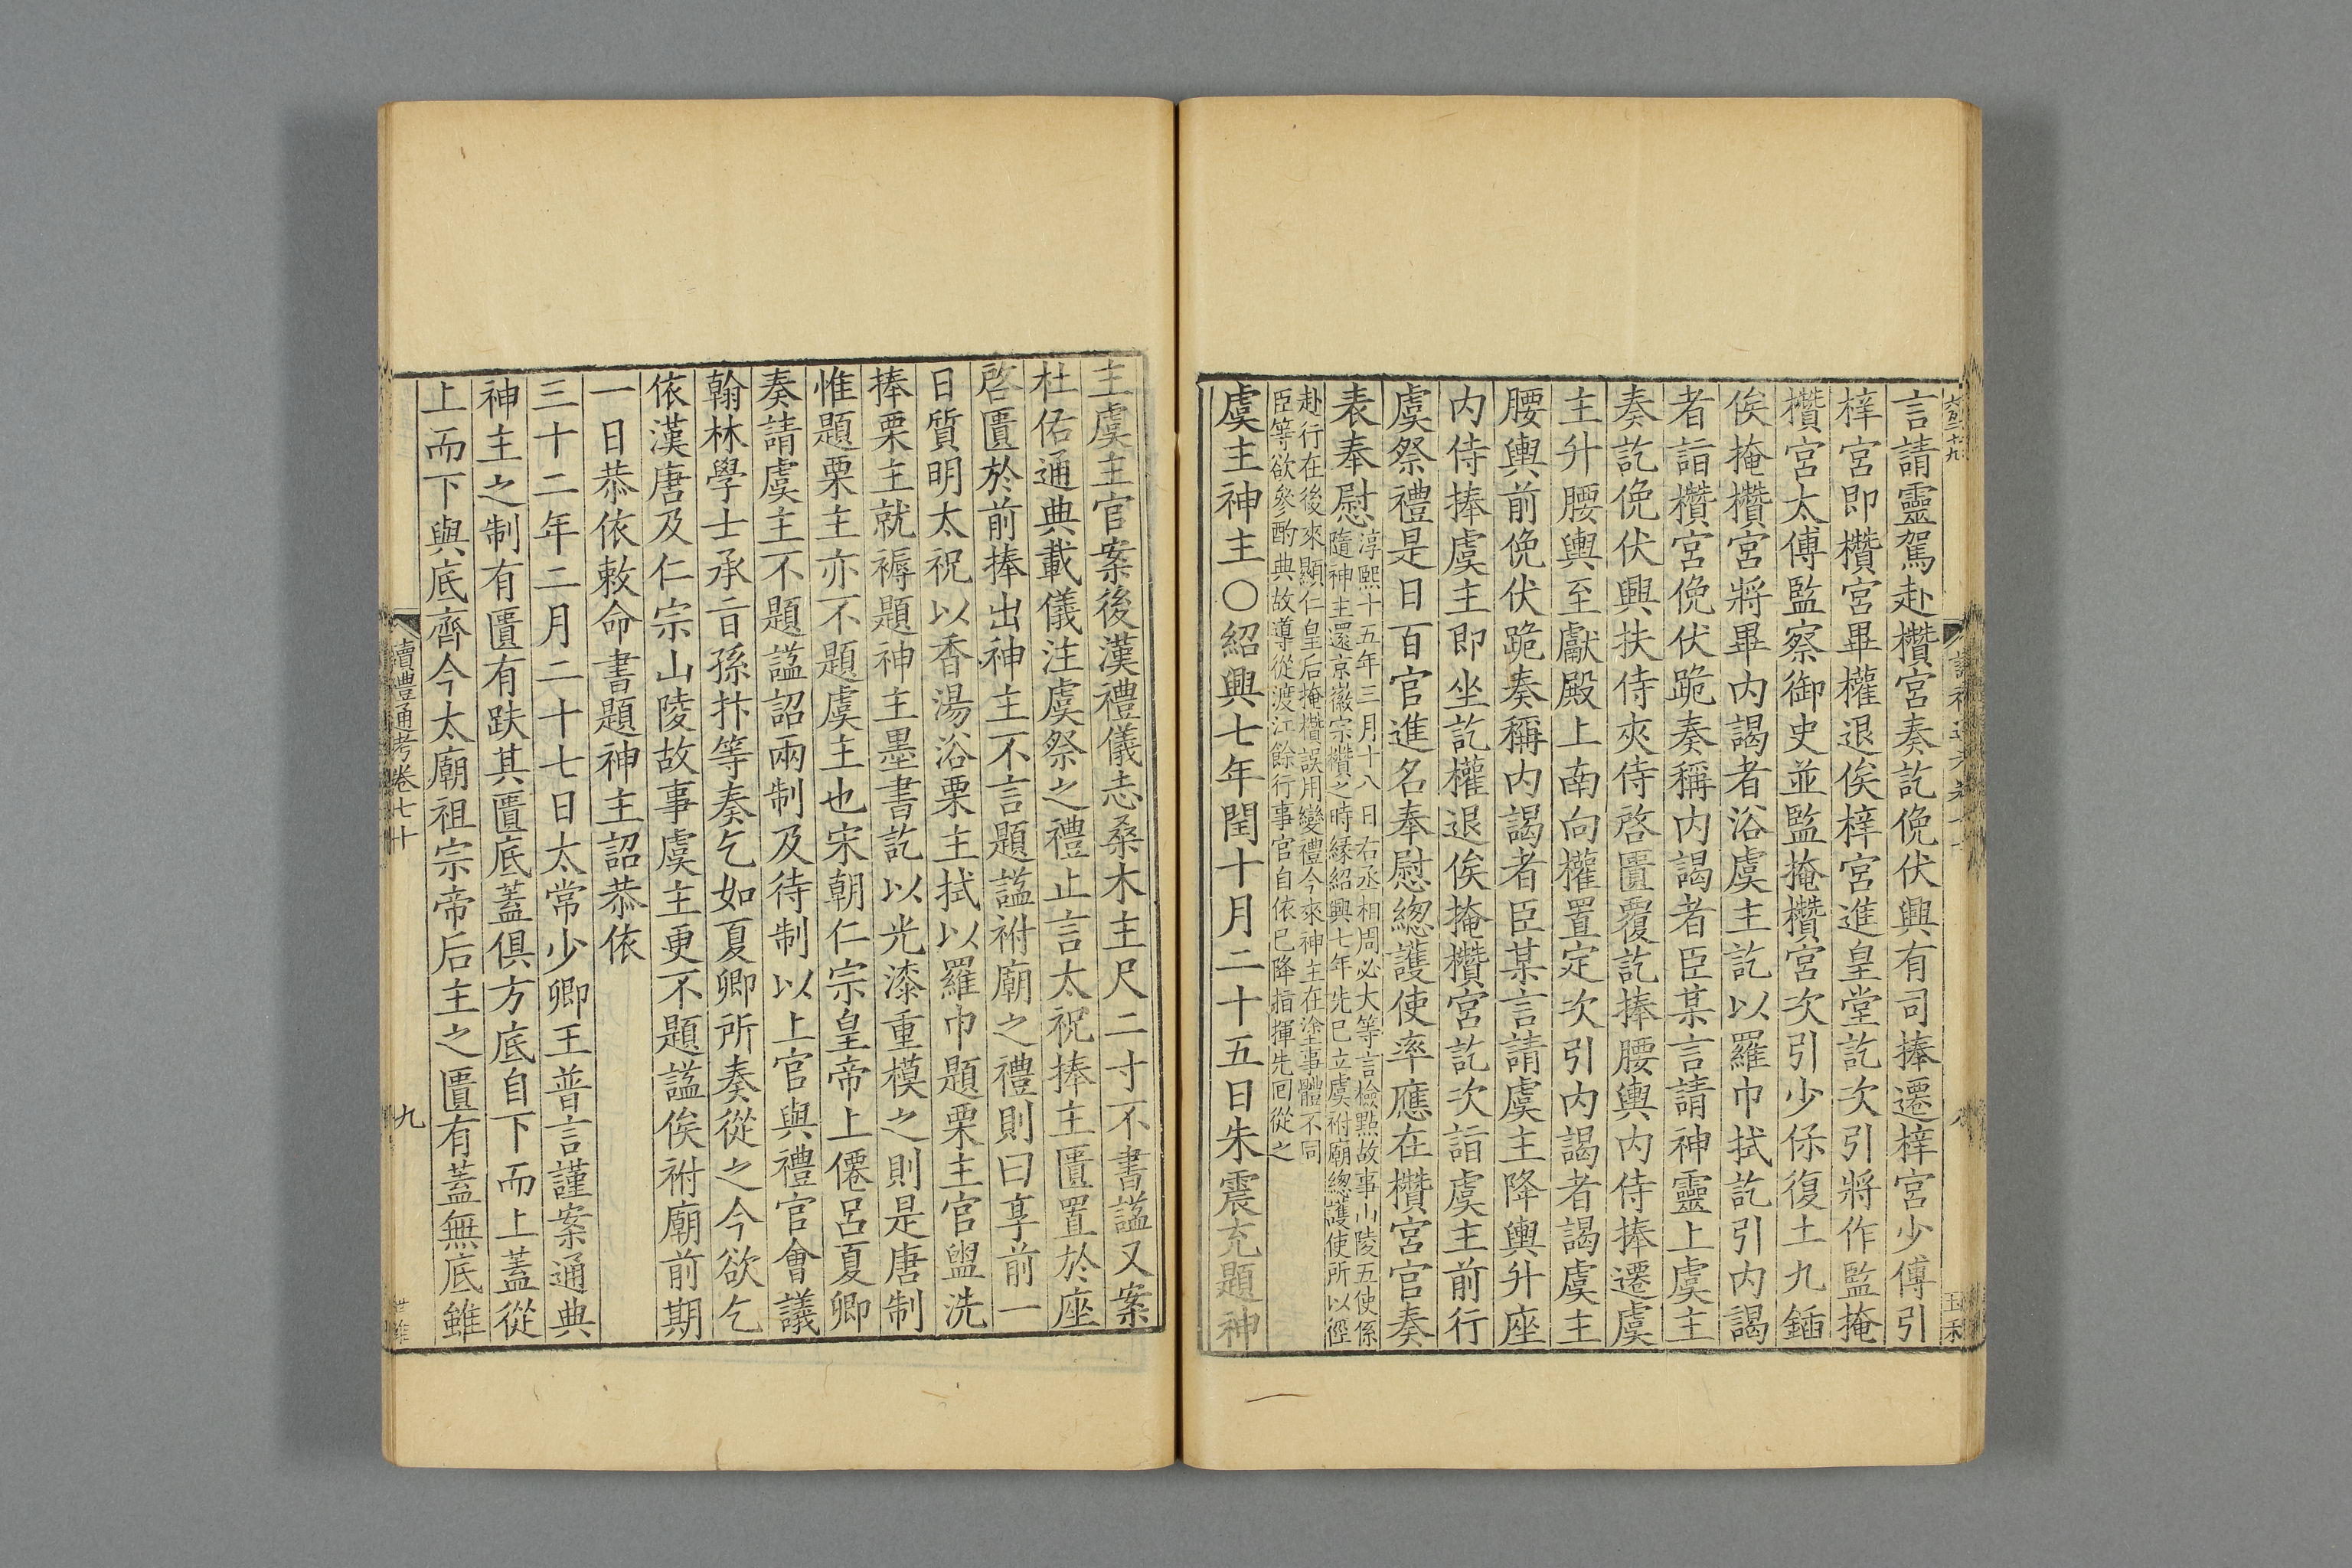 言請靈駕赴欑宮奏訖俛伏興有司捧遷梓宮少傅引
梓宮即欑宮畢權退俟梓宮進皇堂訖次引將作監掩
欑宮太傅監察御史並監掩欑宮次引少保復土九鍤
俟掩欑宮將畢內謁者浴虞主訖以羅巾拭訖引內謁
者詣欑宮俛伏跪奏稱內謁者臣某言請神靈上虞主
奏訖俛伏興扶侍夾侍啓匱覆訖捧腰輿內侍捧遷虞
主升腰輿至獻殿上南向權置定次引內謁者謁虞主
腰輿前俛伏跪奏稱內謁者臣某言請虞主降輿升座
內侍捧虞主即坐訖權退俟掩欑宮訖次詣虞主前行
虞祭禮是日百官進名奉慰總護使率應在欑宮官奏
表奉慰
淳熙十五年三月十八日右丞相周必大等言檢㸃故事山陵五使係
隨神主還京徽宗欑之時緣紹興七年先已立虞祔廟總護使所以徑
赴行在後來顯仁皇后掩欑誤用變禮今來神主在塗事體不同
臣等欲參酌典故導從渡江餘行事官自依已降指揮先回從之
虞主神主○紹興七年閏十月二十五日朱震充題神
主虞主官案後漢禮儀志桑木主尺二寸不書諡又案
杜佑通典載儀注虞祭之禮止言太祝捧主匱置於座
啓匱於前捧出神主不言題諡祔廟之禮則曰享前一
日質明太祝以香湯浴栗主拭以羅巾題栗主官盥洗
捧栗主就褥題神主墨書訖以光漆重模之則是唐制
惟題栗主亦不題虞主也宋朝仁宗皇帝上僊呂夏卿
奏請虞主不題諡詔兩制及待制以上官與禮官會議
翰林學士承㫖孫抃等奏乞如夏卿所奏從之今欲乞
依漢唐及仁宗山陵故事虞主更不題諡俟祔廟前期
一日恭依敕命書題神主詔恭依
三十二年二月二十七日太常少卿王普言謹案通典
神主之制有匱有趺其匱底蓋俱方底自下而上蓋從
上而下與底齊今太廟祖宗帝后主之匱有蓋無底雖
讀禮通考卷七十
九